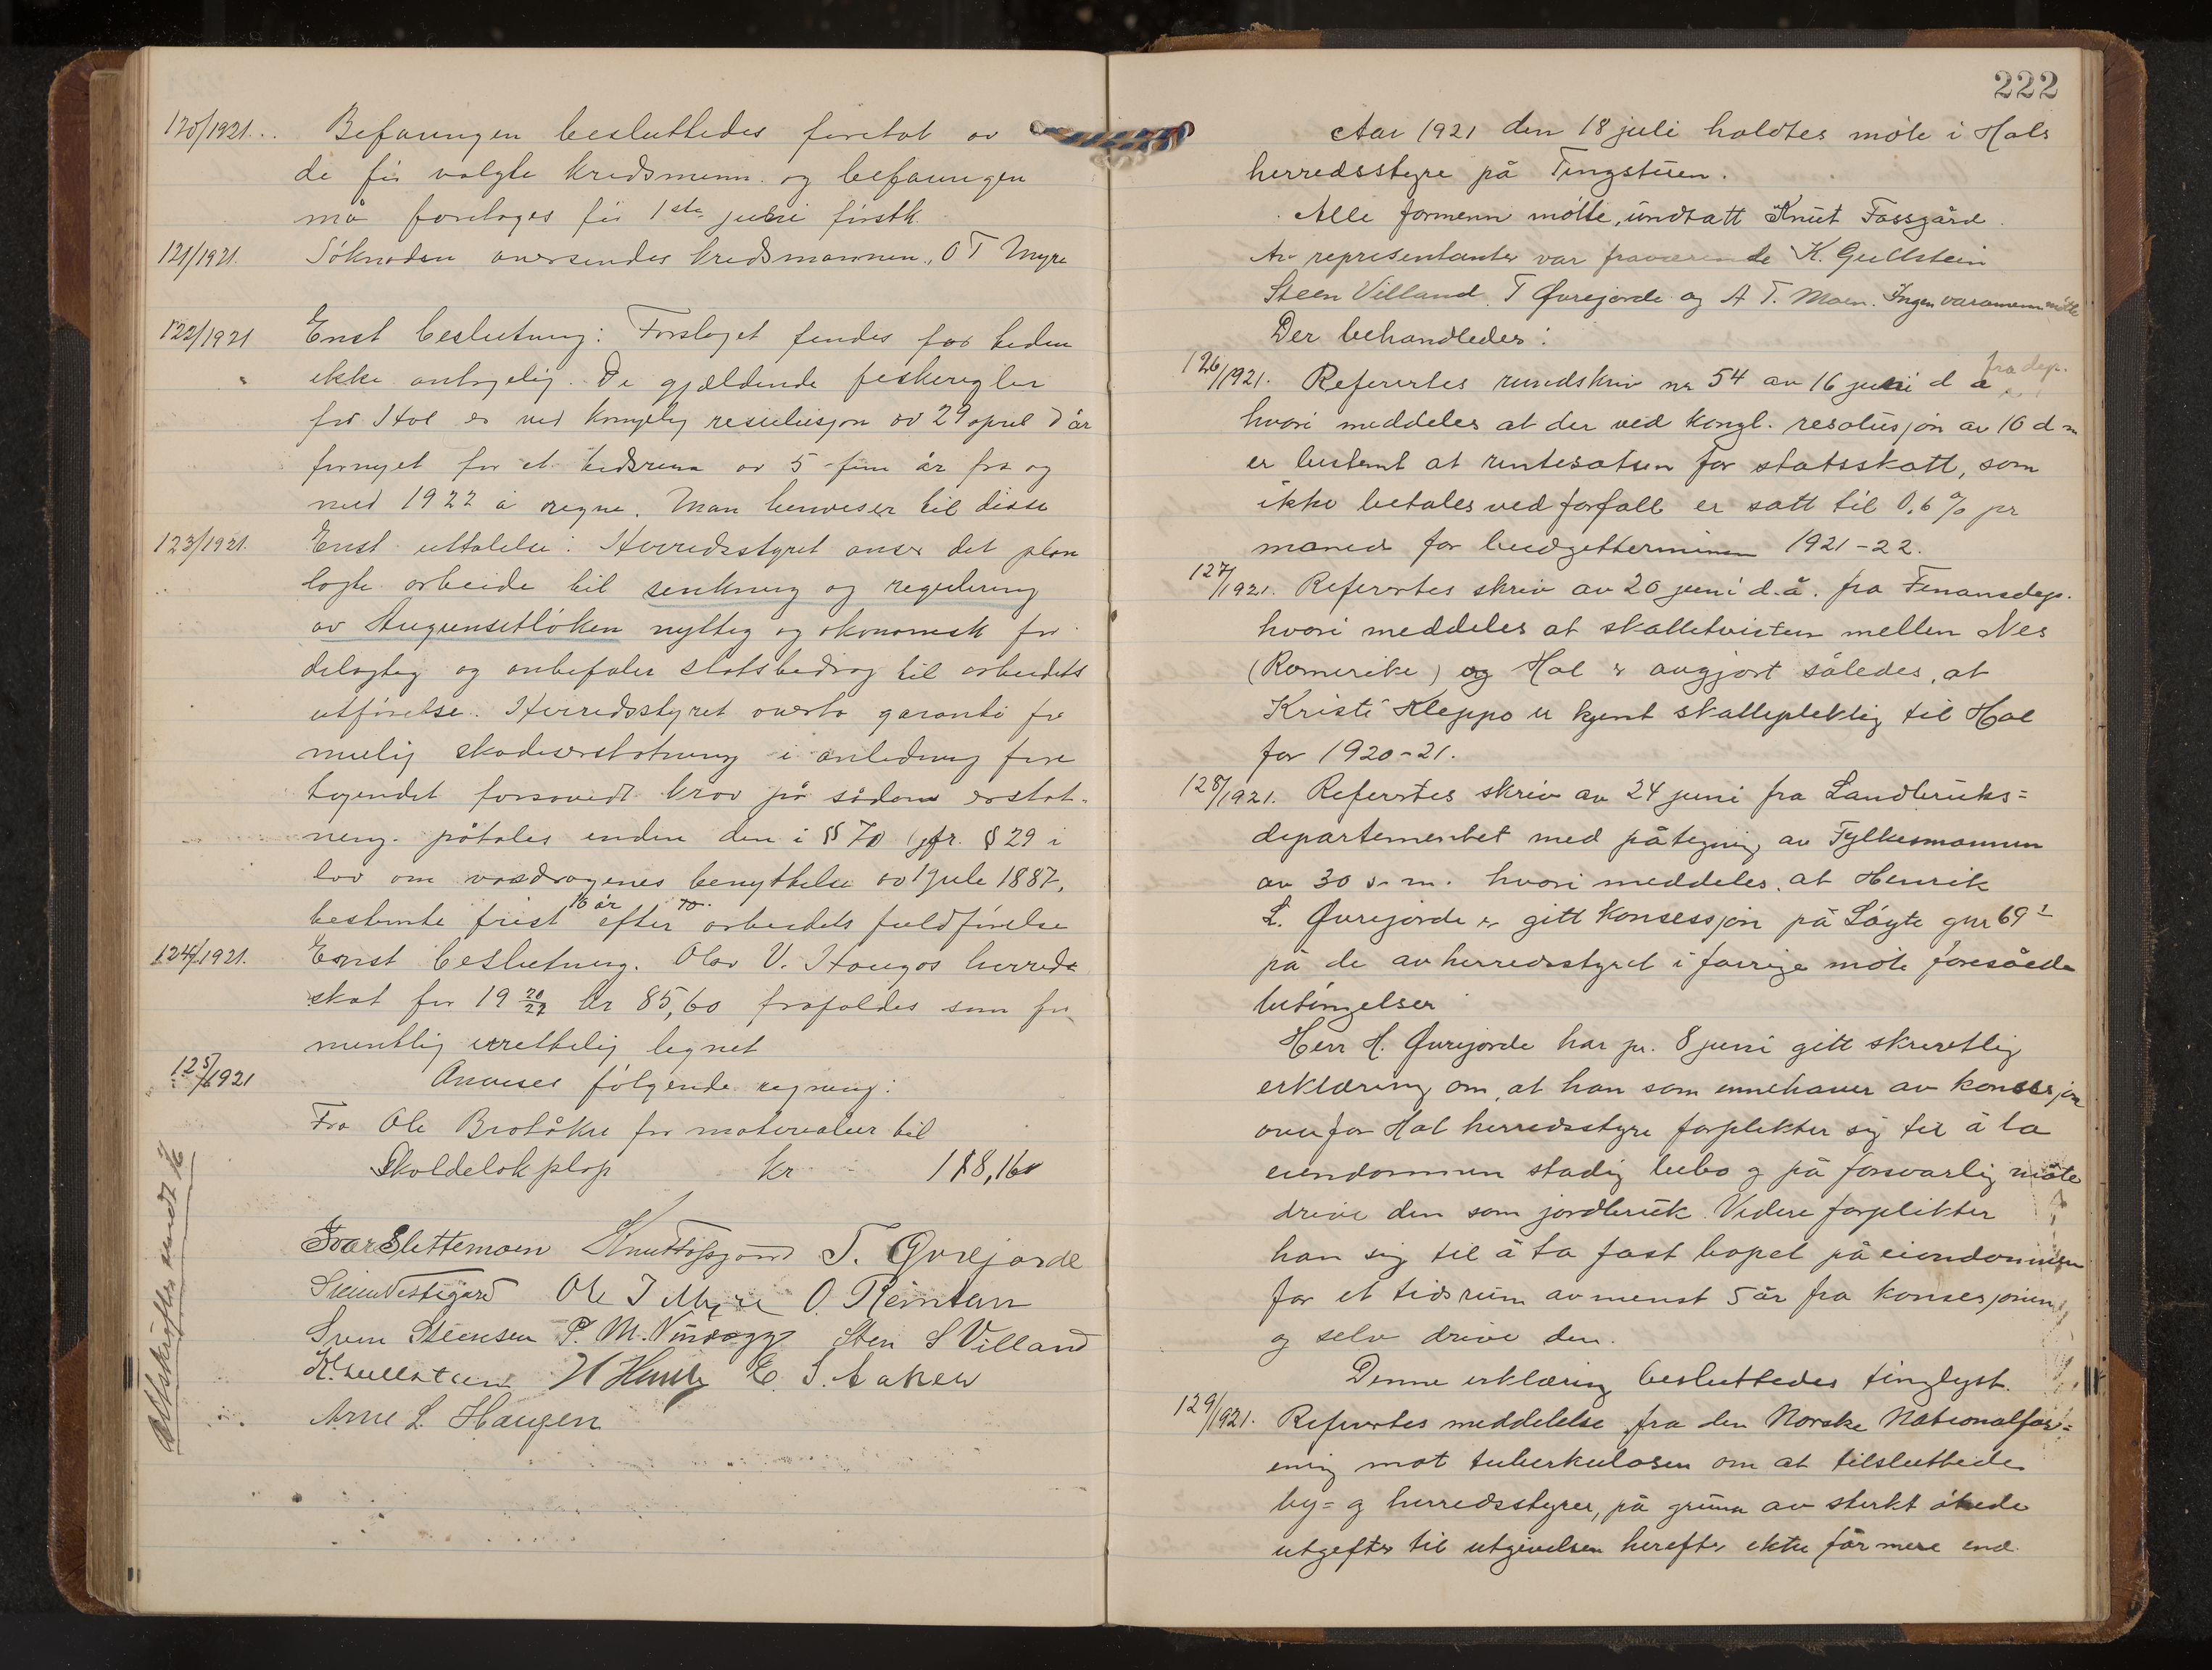 120/1921. Befaringen besluttedes foretat av
de før valgte kredsmenn og befaringen
må foretages før 1ste juli førstk.
121/1921. Söknaden oversendes kredsmannen, O T Myre
122/1921 Enst beslutning: Forslaget findes for tiden
ikke antagelig. De gjældende fiskeregler
for Hol er ved kongelig resulusjon av 29 april d år
fornyet for et tidsrum av 5 fem år fra og
med 1922 å regne. Man henviser til disse
123/1921. Enst uttalelse: Herredsstyret anser det plan
lagte arbeide til senkning og regulering
av Augunsetlöken nyttig og økonomisk for
delagtig og anbefaler statsbidrag til arbeidets
utførelse. Herredsstyret overta garanti for
mulig skadeserstatning i anledning fore
tagendet forsåvidt krav på sådan erstat-
ning påtales inden den i §§ 70 (jfr. § 29 i
lov om vasdragenes benyttelse av 1 juli 1887,
bestemte frist 10 år efter arbeidets fuldførelse
124/1921. Enst beslutning. Olav V. Haugos herreds
skat for 19 20/21 kr 85,60 frafaldes som for
mentlig urettelig lignet
125/1921 Anvises følgende regning:
Fra Ole Brotåker for materialer til
Skoldelok plap kr 188,160
Utskrifter sendt
Ivar Slettemoen Knut Fossgard T. Øvrejorde
Svein Vestegard Ole T Myre O. Reinton
Sven Steensen P. M. Nindegg Sten S Villand
K. Gullstein H Heuch E. S. Aaker
Arne L. Haugen
222
Aar 1921 den 18 juli holdtes møte i Hols
herredsstyre på Tingstuen.
Alle formenn møtte, undtatt Knut Fossgård.
Av representanter var fraværende K. Gullstein
Steen Villand, T Øvrejorde og A T. Moen. Ingen varamenn møtte
Der behandledes:
126/1921. Refertes rundskriv nr 54 av 16 juni d å fra dep.
hvori meddeles at der ved kongl. resolusjon av 10 d m
er bestemt at rentesatsen for statsskatt, som
ikke betales ved forfall er satt til 0,6 % pr
måned for budgetterminen 1921-22.
127/1921. Refertes skriv av 20 juni d.å. fra Finansdep.
hvori meddeles at skattetvisten mellen Nes
(Romerike) og Hol er avgjort således, at
Kristi Kleppo er kjent skattepliktig til Hol
for 1920-21.
128/1921. Refertes skriv av 24 juni fra Landbruks=
departementet med påtegning av Fylkesmannen
av 30 s. m. hvori meddeles, at Henrik
L. Øvrejorde er gitt konsessjon på Løyte gnr 69
på de av herredsstyret i forrige møte foresåede
betingelser
Herr H. Øvrejorde har pr. 8 juni gitt skriftlig
erklæring om, at han som innehaver av konsesjon
overfor Hol herredsstyre forplikter sig til å la
eiendommen stadig bebo og på forsvarlig måte
drive den som jordbruk. Videre forplikter
han sig til å ta fast bopel på eiendommen
for et tidsrum av minst 5 år fra konsesjonen,
og selv drive den.
Denne erklæring besluttedes tinglyst.
129/1921. Refertes meddelelse fra den Norske Nationalfor=
ening mot tuberkulosen om at tilsluttede
by= og herredsstyrer, på grunn av sterkt økede
utgifter til utgivelsen herefter ikke får mere end